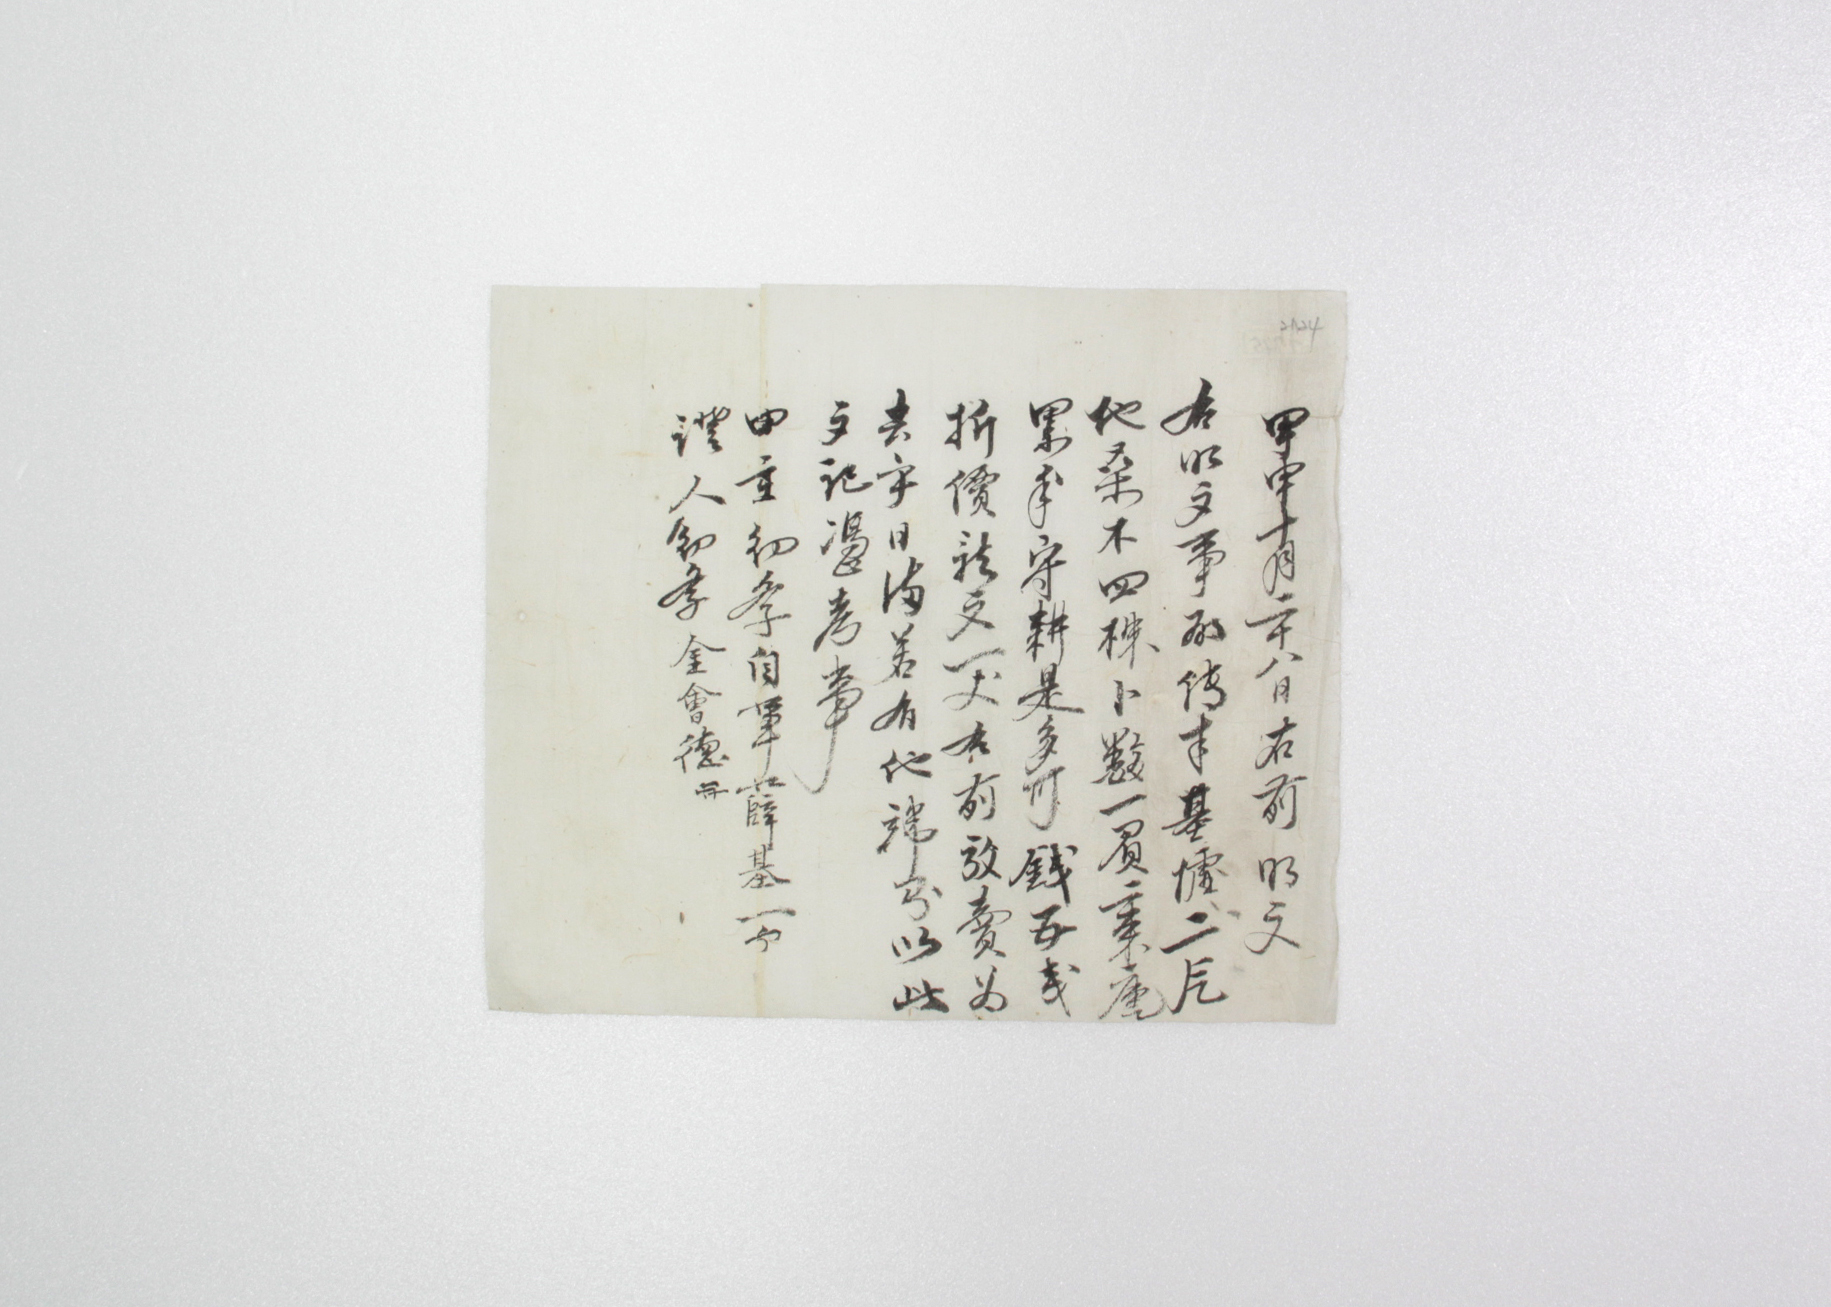 2124
甲申十月二十八日右前明文
右明文事段傳來基墟二片
他桑木四株卜數一負重庫
累年守耕是多可錢五戔
折價詮文一丈右前放賣爲
去乎日後若有他端則以此
文記憑考事
田主幼學自筆薛基一
證人幼學金會德